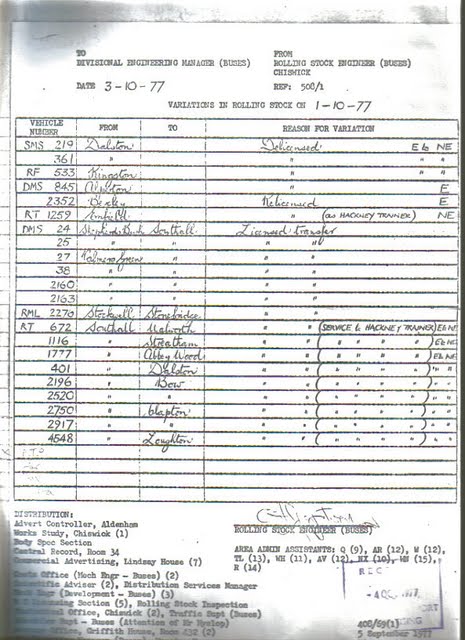 TO
DIVISIONAL ENGINEERING MANAGER (BUSES)
FROM
ROLLING STOCK ENGINEER (BUSES)
CHISWICK
DATE 3-10-77
REF: 508/1
VARIATIONS IN ROLLING STOCK ON 1-10-77
VEHICLE NUMBER FROM TO REASON FOR VARIATION
SMS 219 Dalston Delicensed E to NE
361 " " " "
RF 533 Kingston " " "
DMS 845 Alperton " E
2352 Bexley Relicensed E
RT 1259 Enfield " (as HACKNEY TRAINER) NE
DMS 24 Shepherds Bush Southall Licensed transfer
25 " " " "
27 " " "
38 " " " "
2160 " " " "
2163 " " " "
RML 2270 Stockwell Stonebridge " "
RT 672 Southall Walworth " " (SERVICE to HACKNEY TRAINER) E to NE
1116 " Streatham " " ( " " " " ) E to NE
1777 " Abbey Wood " " ( " " " " ) E to NE
401 " Dalston " " ( " " " " ) " "
2196 " Bow " " ( " " " " ) " "
2520 " " " " ( " " " " ) " "
2750 " Clapton " " ( " " " " ) " "
2917 " " " " ( " " " " ) " "
4548 " Loughton " " ( " " " " ) " "
DISTRIBUTION:
Advert Controller, Aldenham
Works Study, Chiswick (1)
Body Spec Section
Central Record, Room 34
Commercial Advertising, Lindsay House (7)
Office (Mech Engr - Buses) (2)
Adviser (2), Distribution Services Manager
Engr (Development - Buses) (3)
Section (5), Rolling Stock Inspection
Office, Chiswick (2), Traffic Supt (Buses)
Supt - Buses (Attention of Mr Hyslop)
Office, Griffith House, Room 432 (2)
ROLLING STOCK ENGINEER (BUSES)
AREA ADMIN ASSISTANTS: Q (9), AR (12), W (12),
TL (13), WH (11), AV (12), HT (10), WN (15),
R (14)
REC
-4 OCT 1977
408/59(1)
5 September 1977